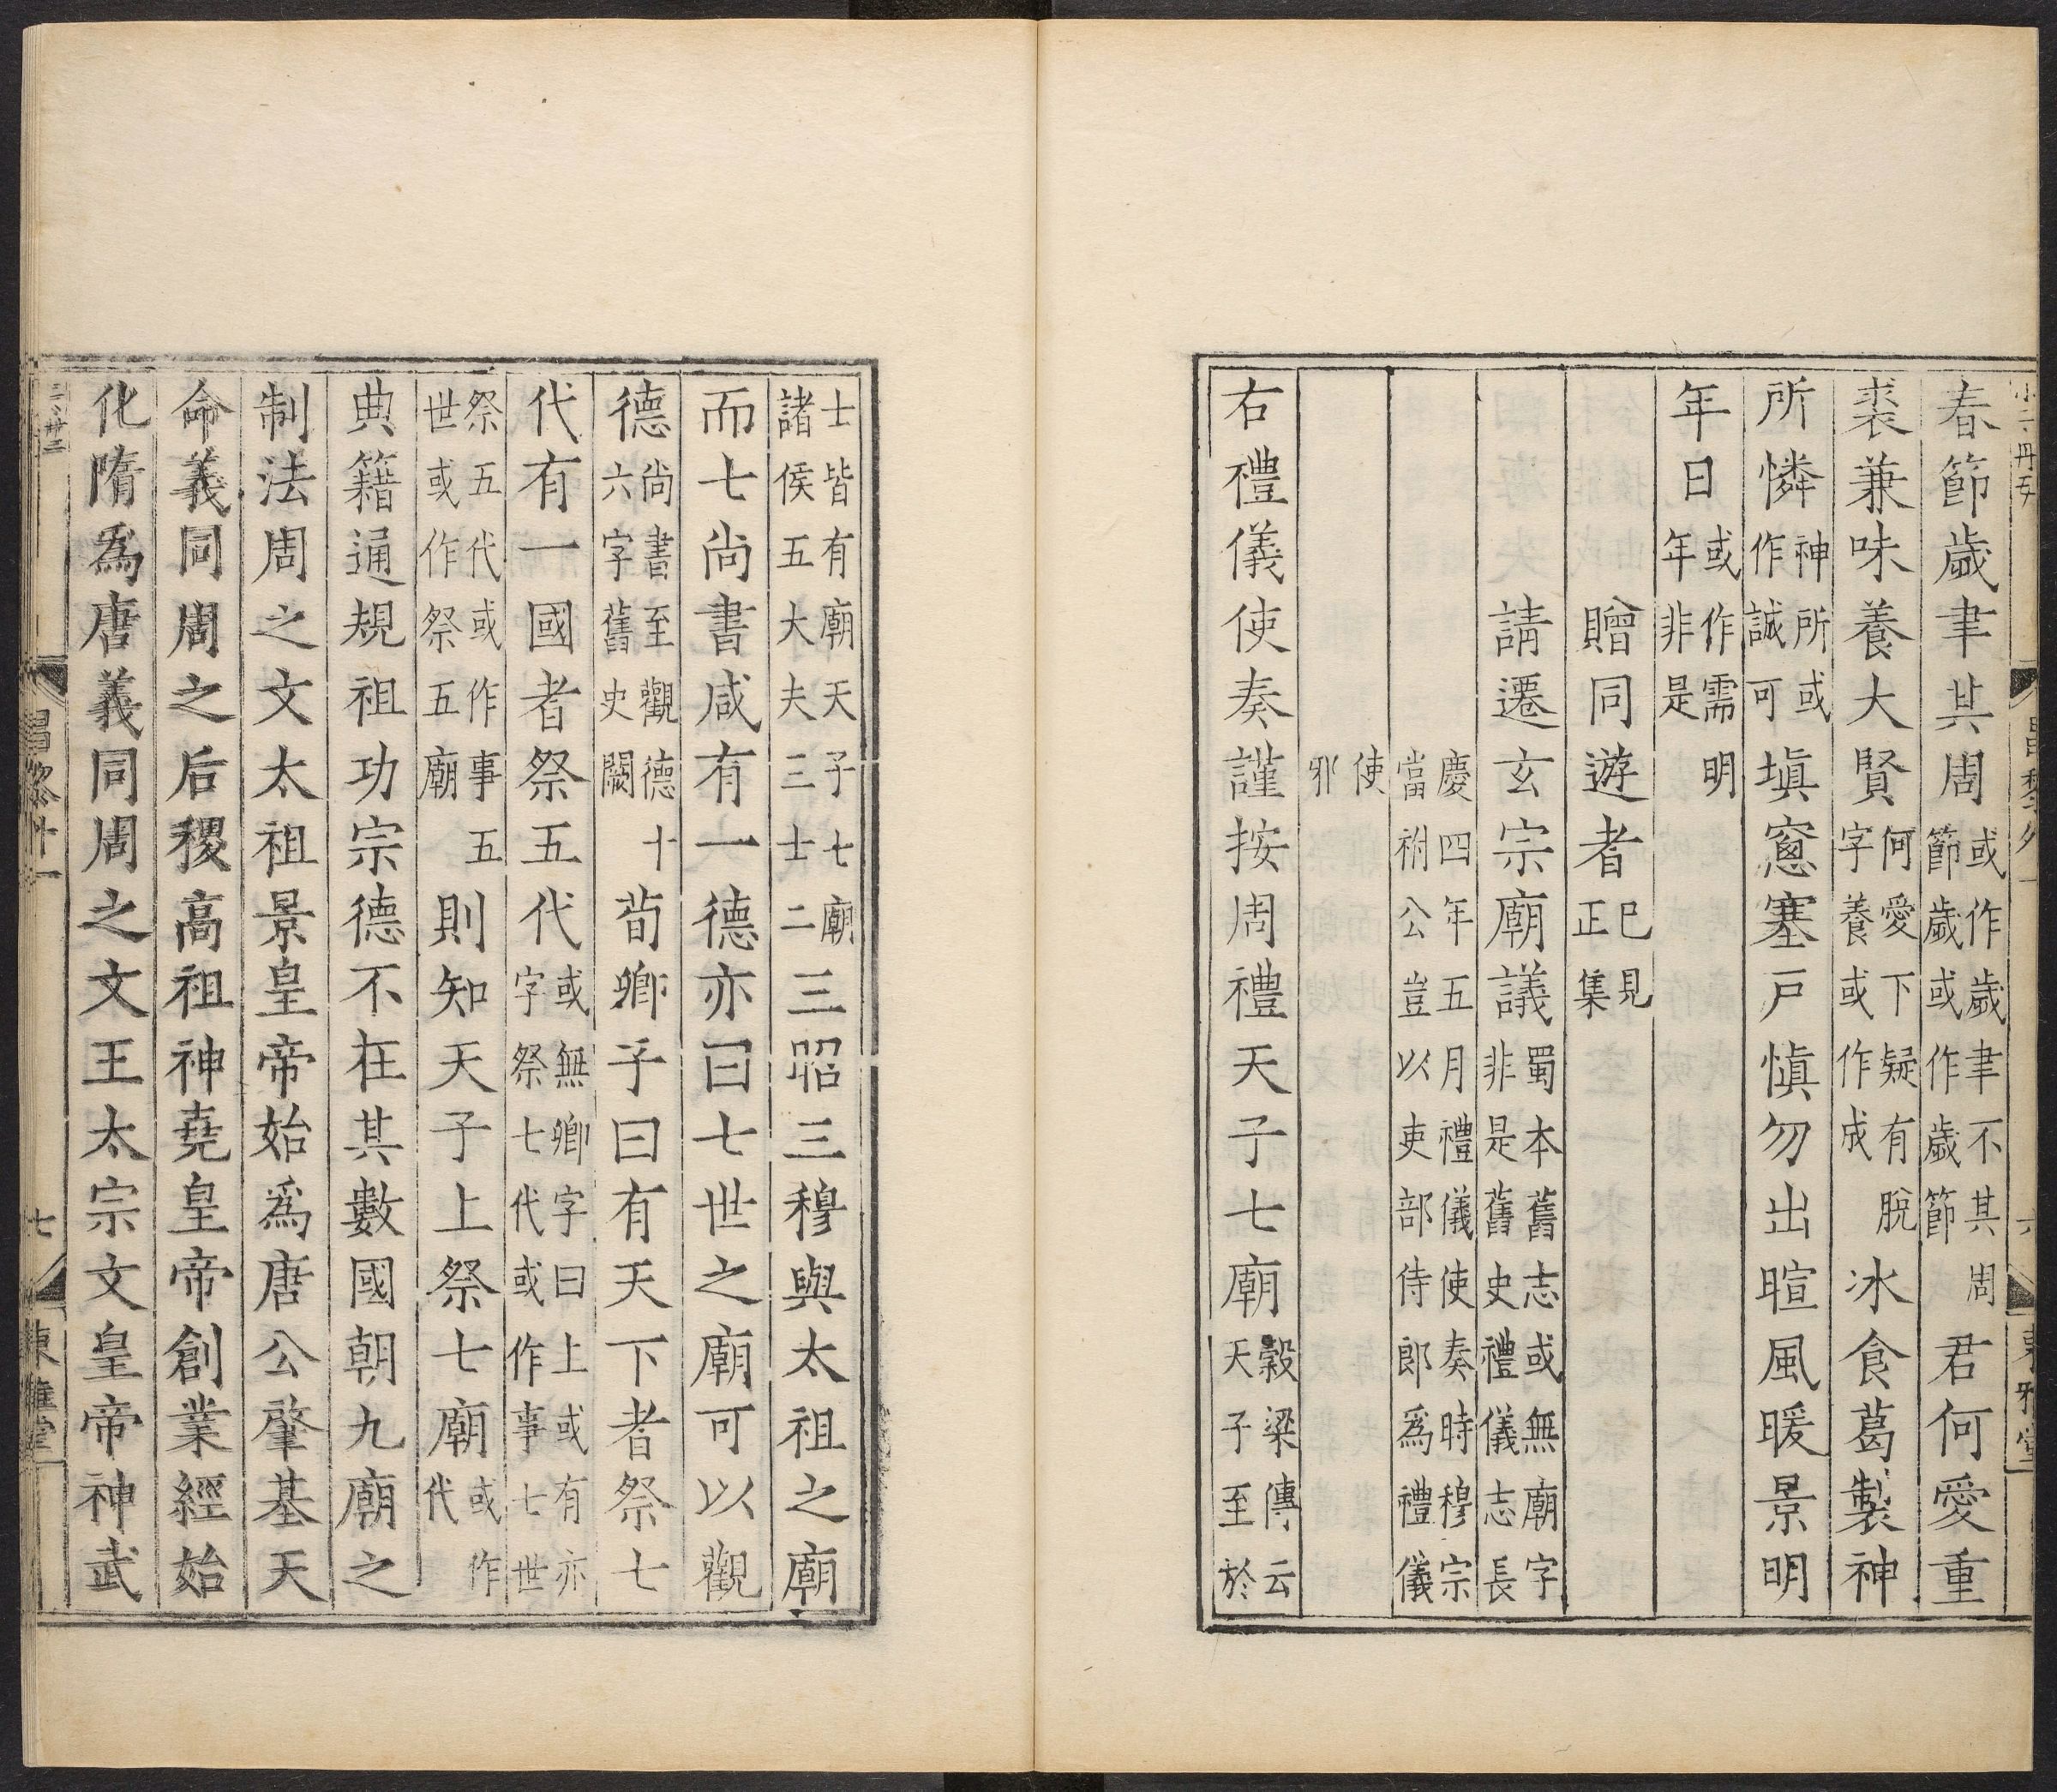 春節歲聿其周或作歲聿不其周節歲或作歲節君何愛重
裘兼味養大賢何愛下疑有脫字養或作成冰食葛製神
所憐神所或作誠可塡窻塞戶愼勿出暄風暖景明
年日或作需明年非是
贈同遊者巳見正集
請遷玄宗廟議蜀本舊志或無廟字非是舊史禮儀志長
慶四年五月禮儀使奏時穆宗當祔公豈以吏部侍郎爲禮儀
使邪
右禮儀使奏謹按周禮天子七廟穀梁傳云天子至於
士皆有廟天子七廟諸侯五大夫三士二三昭三穆與太祖之廟
而七尚書咸有一德亦曰七世之廟可以觀
德尚書至觀德十六字舊史闕荀卿子曰有天下者祭七
代有一國者祭五代或無卿字曰上或有亦字祭七代或作事七世
祭五代或作事五世或作祭五廟則知天子上祭七廟或作代
典籍通規祖功宗德不在其數國朝九廟之
制法周之文太祖景皇帝始爲唐公肇基天
命義同周之后稷高祖神堯皇帝創業經始
化隋爲唐義同周之文王太宗文皇帝神武
昌黎 十一
七
東雅堂